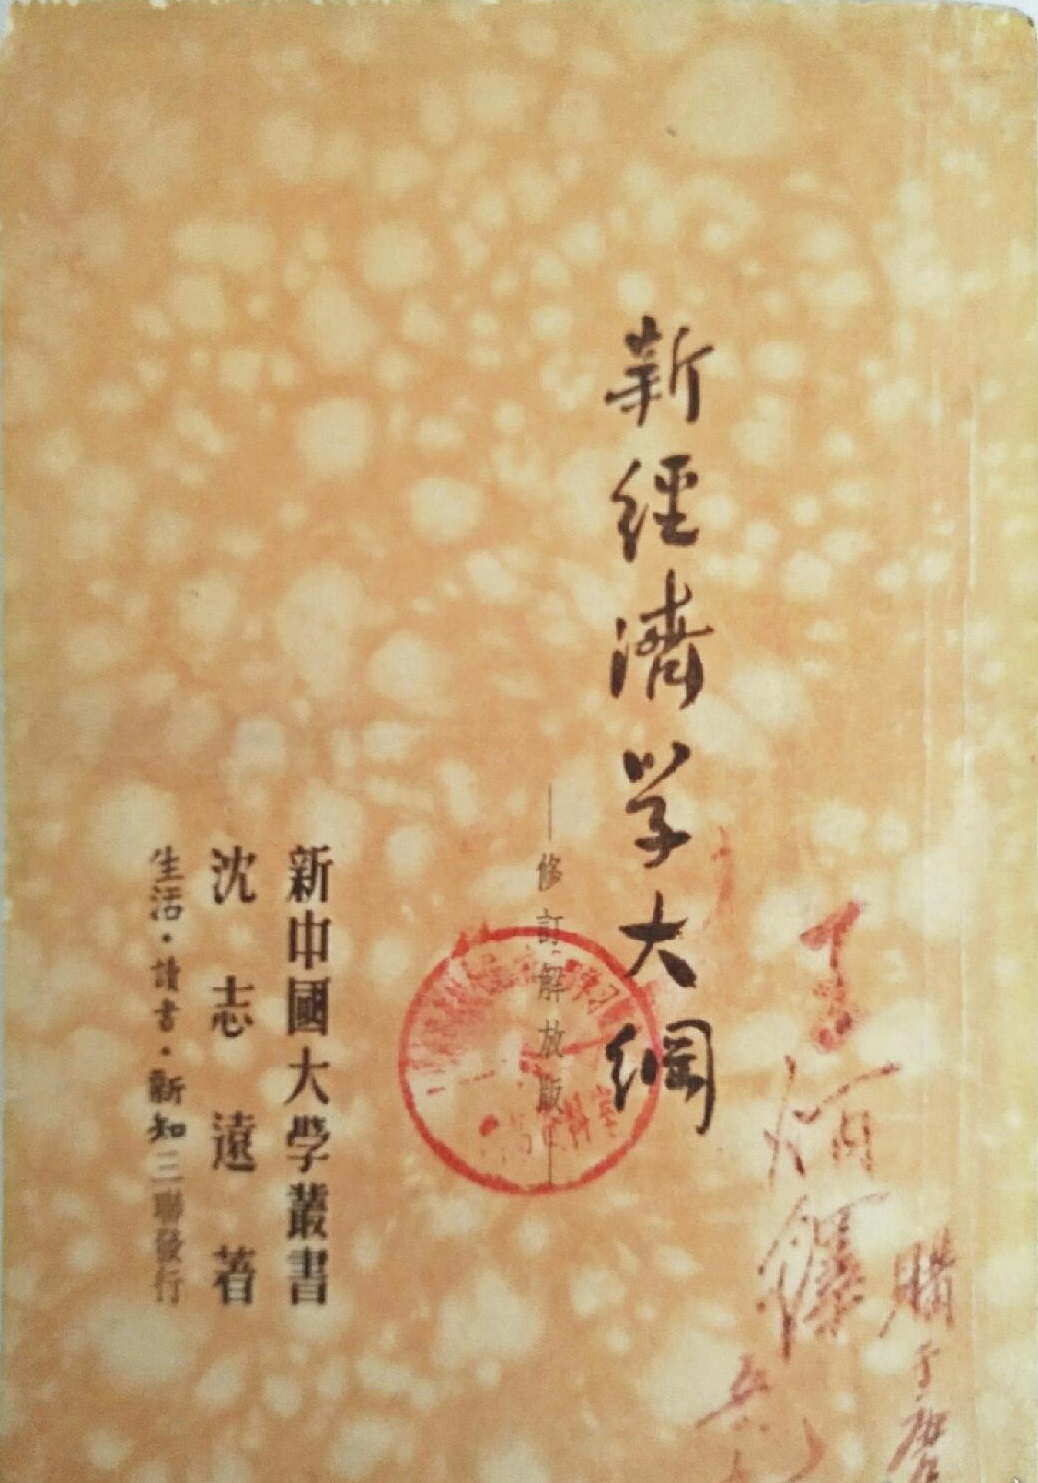 新經濟学大綱
——修訂解放版——
新中國大學叢書
沈志遠著
生活·讀書·新知三聯發行
購于